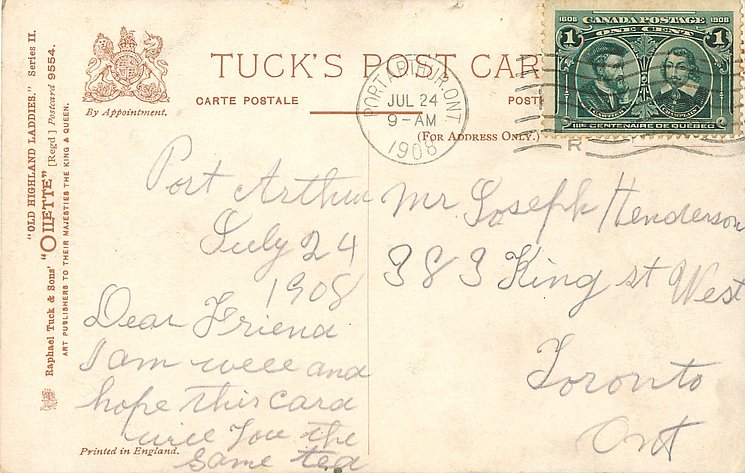 TUCK'S POST CAR
CARTE POSTALE
POST
(FOR ADDRESS ONLY.)
By Appointment.
"OLD HIGHLAND LADDIES." Series II.
Raphael Tuck & Sons' "OILETTE" [Regd] Postcard 9554.
ART PUBLISHERS TO THEIR MAJESTIES THE KING & QUEEN.
PORT ARTHUR, ONT
JUL 24
9-AM
1908
1608 CANADA POSTAGE 1908
1 ONE CENT 1
IIIe CENTENAIRE DE QUEBEC
R
Port Arthur
July 24
1908
Dear Friend
I am well and
hope this card
will you the
same ted
Mr Joseph Henderson
383 King st West
Toronto
Ont
Printed in England.